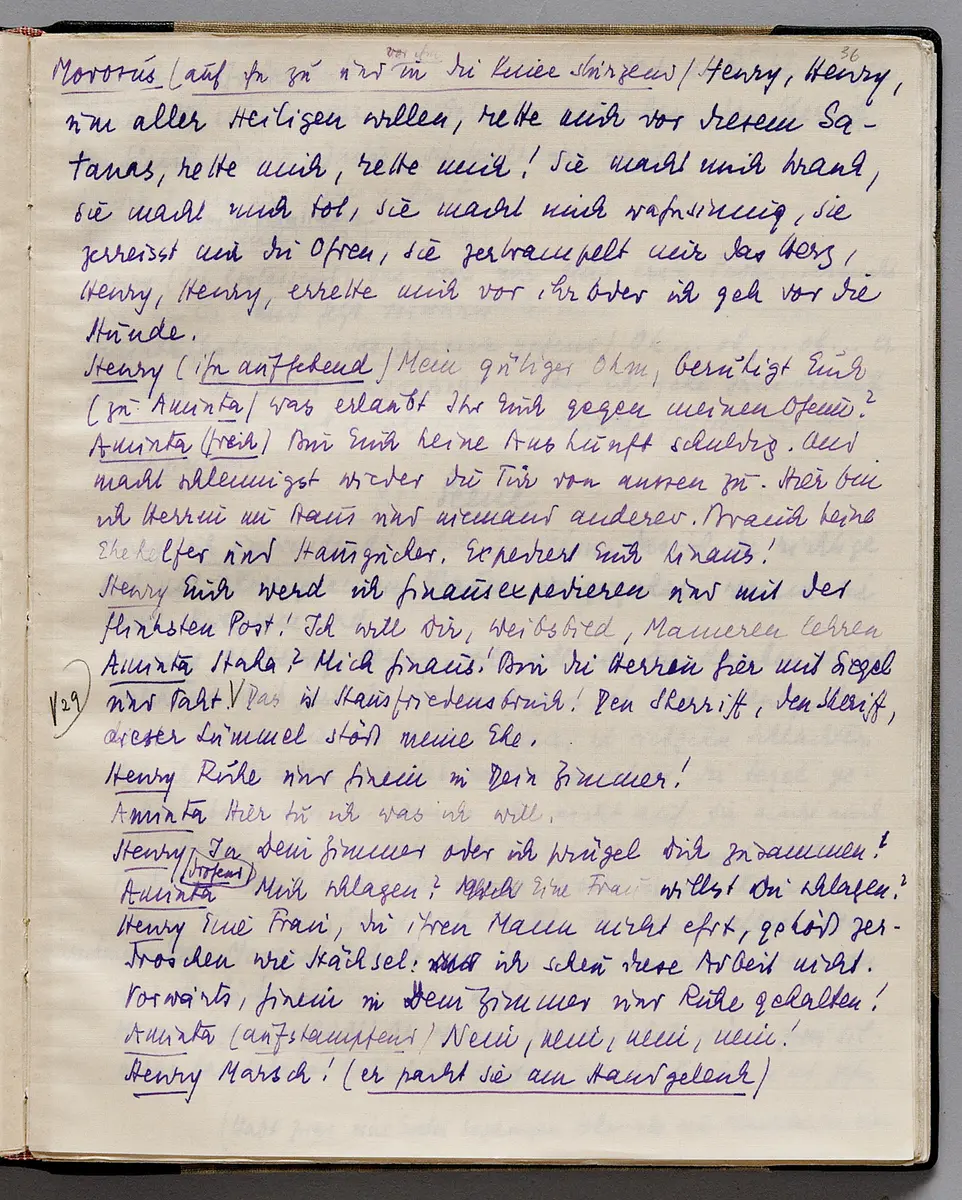 36
vor ihm
Morosus (auf ihn zu und in die Kniee stürzend) Henry, Henry,
um aller Heiligen willen, rette mich vor diesem Sa-
tanas, rette mich, rette mich! Sie macht mich krank,
sie macht mich tot, sie macht mich wahnsinnig, sie
zerreisst mir die Ohren, sie zertrampelt mir das Herz,
Henry, Henry, errette mich vor ihr oder ich geh vor die
Hunde.
Henry (ihn aufhebend) Mein gütiger Ohm, beruhigt Euch
(zu Aminta) was erlaubt Ihr Euch gegen meinen Oheim?
Aminta (frech) Bin Euch keine Auskunft schuldig. Und
macht schleunigst wieder die Tür von aussen zu. Hier bin
ich Herrin im Haus und niemand anderer. Brauch keine
Ehehelfer und Hausgucker. Expediert Euch hinaus!
Henry Euch werd ich hinausexpedieren und mit der
flinksten Post! Ich will Dir, Weibsbild, Manieren lehren
Aminta Haha? Mich hinaus! Bin die Herrin hier mit Siegel
V29 und Fakt. V Das ist Hausfriedensbruch! Den Sherriff, den Sheriff,
dieser Lümmel stört meine Ehe.
Henry Ruhe und hinein in Dein Zimmer!
Aminta Hier tu ich was ich will.
Henry In Dein Zimmer oder ich prügel Dich zusammen!
(drohend)
Aminta Mich schlagen? Eine Frau willst Du schlagen?
Henry Eine Frau, die ihren Mann nicht ehrt, gehört zer-
droschen wie Häcksel: ich scheu diese Arbeit nicht.
Vorwärts, hinein in Dein Zimmer und Ruhe gehalten!
Aminta (aufstampfend) Nein, nein, nein, nein!
Henry Marsch! (er packt sie am Handgelenk)